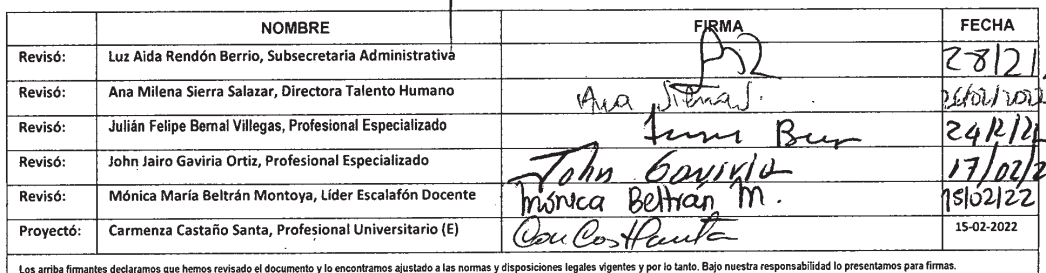 NOMBRE FIRMA FECHA
Revisó: Luz Aida Rendón Berrio, Subsecretaria Administrativa 28/2/
Revisó: Ana Milena Sierra Salazar, Directora Talento Humano Ana Sierra S.
Revisó: Julián Felipe Bernal Villegas, Profesional Especializado 24/2/2
Revisó: John Jairo Gaviria Ortiz, Profesional Especializado John Gaviria 17/02/2
Revisó: Mónica María Beltrán Montoya, Líder Escalafón Docente Mónica Beltrán M. 15/02/22
Proyectó: Carmenza Castaño Santa, Profesional Universitario (E) 15-02-2022
Los arriba firmantes declaramos que hemos revisado el documento y lo encontramos ajustado a las normas y disposiciones legales vigentes y por lo tanto. Bajo nuestra responsabilidad lo presentamos para firmas.